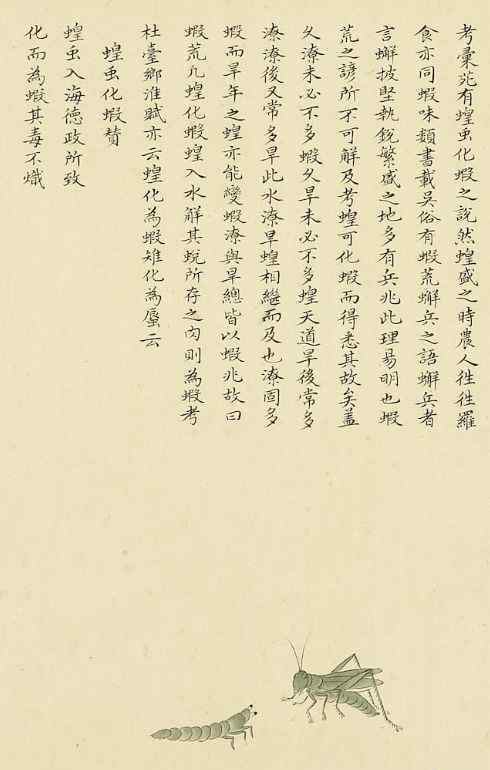 考彙苑有蝗虫化蝦之說然蝗盛之時農人徃徃羅
食亦同蝦味類書載吳俗有蝦荒蠏兵之語蠏兵者
言蠏披堅執銳繁盛之地多有兵兆此理易明也蝦
荒之諺所不可解及考蝗可化蝦而得悉其故矣盖
乆潦未必不多蝦乆旱未必不多蝗天道旱後常多
潦潦後又常多旱此水潦旱蝗相繼而及也潦固多
蝦而旱年之蝗亦能變蝦潦與旱總皆以蝦兆故曰
蝦荒凢蝗化蝦蝗入水解其蛻所存之肉則為蝦考
杜臺鄉淮賦亦云蝗化為蝦雉化為蜃云
蝗虫化蝦賛
蝗虫入海德政所致
化而為蝦其毒不熾